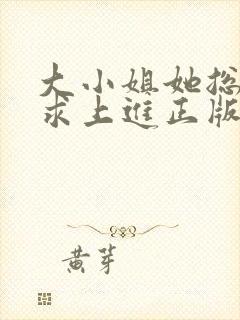 大小姐她总
求上进正版
黄芽